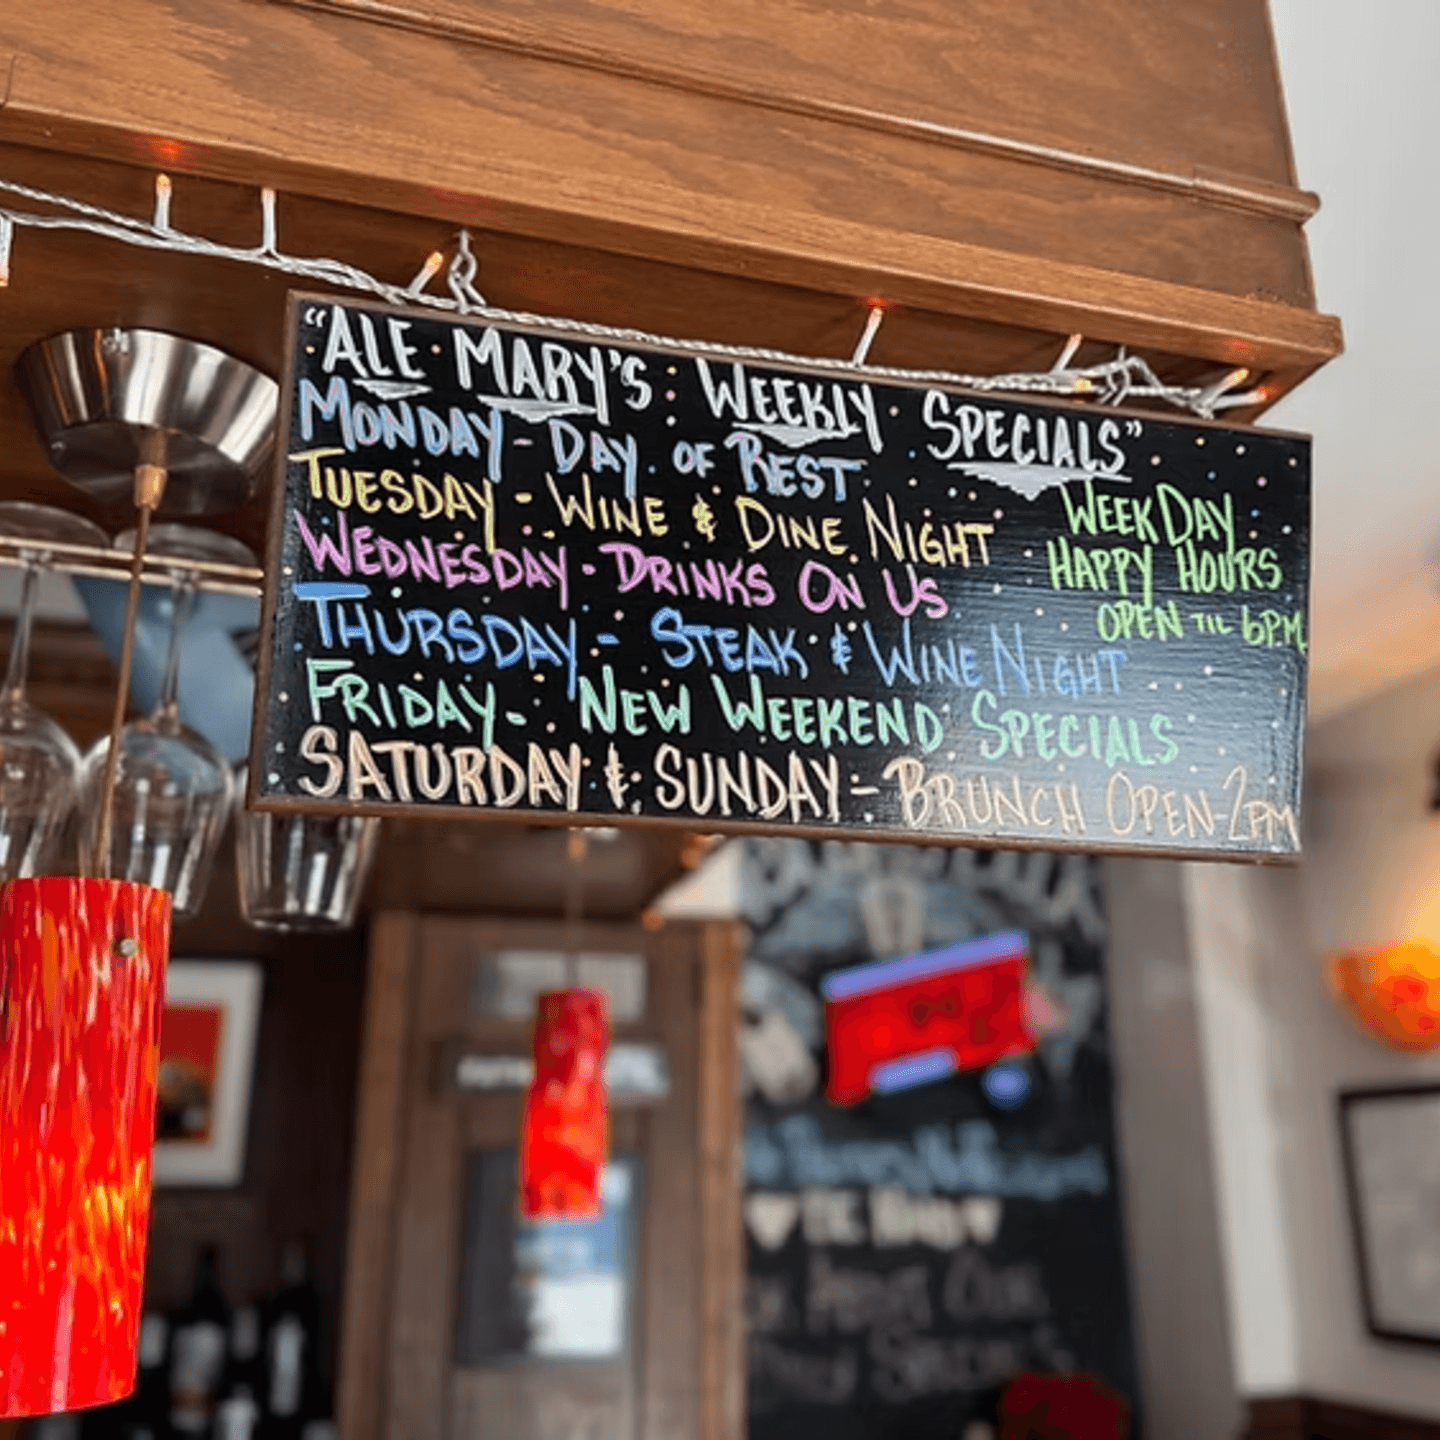 "ALE MARY'S WEEKLY SPECIALS"
MONDAY - DAY OF REST
TUESDAY - WINE & DINE NIGHT
WEDNESDAY - DRINKS ON US
THURSDAY - STEAK & WINE NIGHT
FRIDAY - NEW WEEKEND SPECIALS
SATURDAY & SUNDAY - BRUNCH OPEN-2PM
WEEKDAY
HAPPY HOURS
OPEN TIL 6P.M.